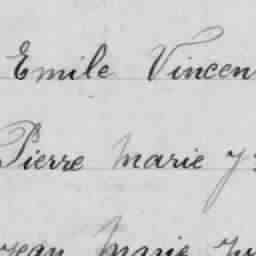 Emile Vincen
Pierre Marie
Jean Marie